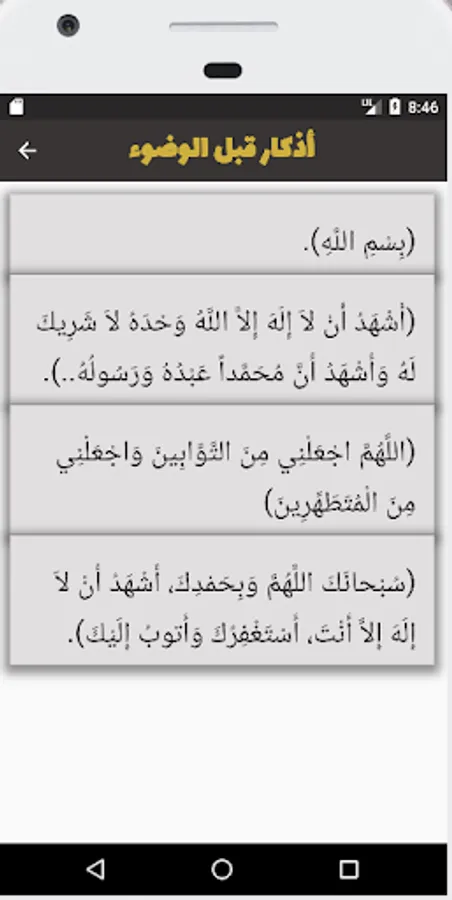 8:46
أذكار قبل الوضوء
(بِسْمِ اللَّهِ).
(أَشْهَدُ أَنْ لاَ إِلَهَ إِلاَّ اللَّهُ وَحْدَهُ لاَ شَرِيكَ
لَهُ وَأَشْهَدُ أَنَّ مُحَمَّداً عَبْدُهُ وَرَسُولُهُ..).
(اللَّهُمَّ اجْعَلْنِي مِنَ التَّوَّابِينَ وَاجْعَلْنِي
مِنَ الْمُتَطَهِّرِينَ)
(سُبْحانَكَ اللَّهُمَّ وَبِحَمدِكَ، أَشْهَدُ أَنْ لاَ
إِلَهَ إِلاَّ أَنْتَ، أَسْتَغْفِرُكَ وَأَتوبُ إِلَيْكَ).